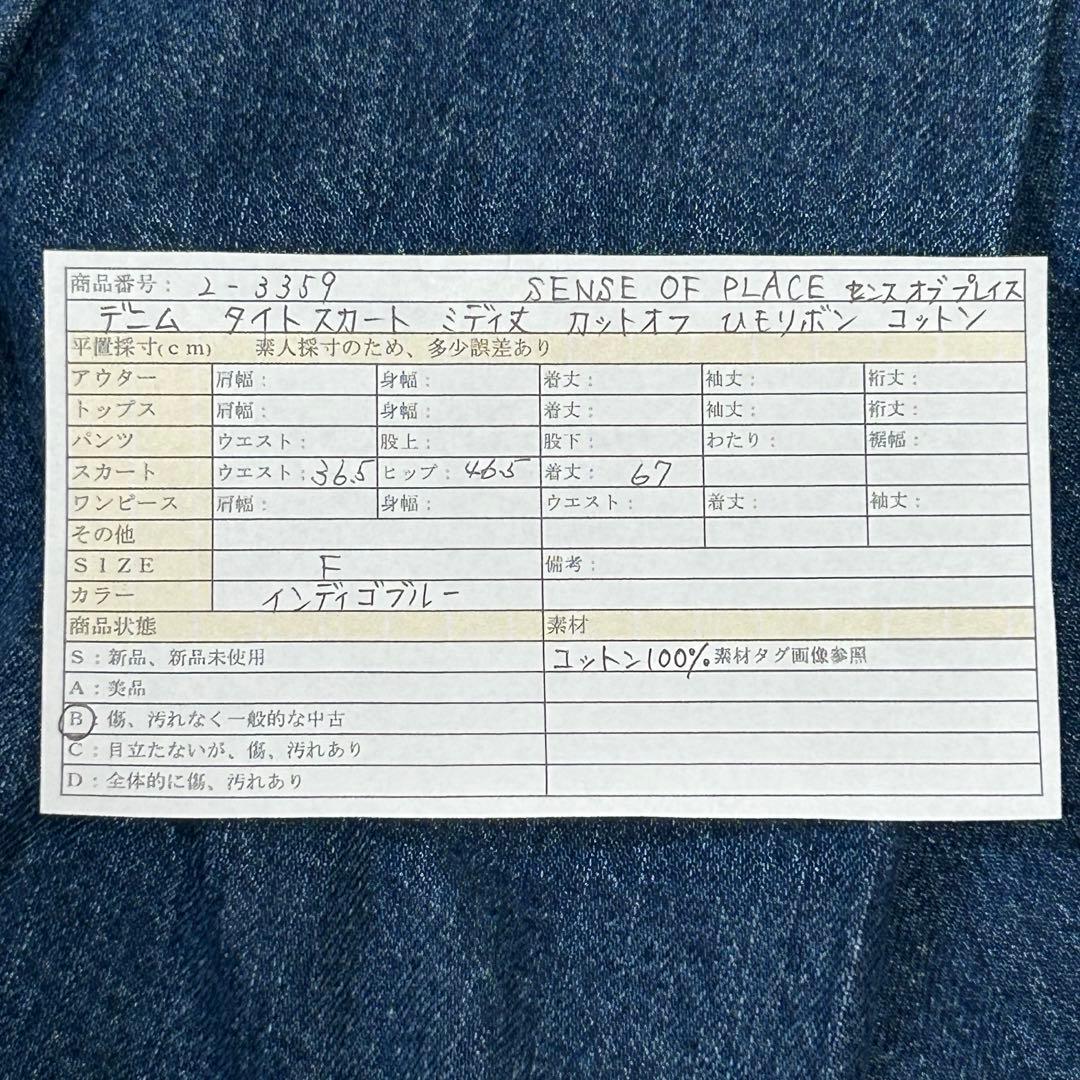 商品番号： 2-3359 SENSE OF PLACE センスオブプレイス
デニム タイトスカート ミディ丈 カットオフ ひもリボン コットン
平置採寸(ｃｍ) 素人採寸のため、多少誤差あり
アウター 肩幅： 身幅： 着丈： 袖丈： 裄丈：
トップス 肩幅： 身幅： 着丈： 袖丈： 裄丈：
パンツ ウエスト： 股上： 股下： わたり： 裾幅：
スカート ウエスト：36.5 ヒップ：46.5 着丈： 67
ワンピース 肩幅： 身幅： ウエスト： 着丈： 袖丈：
その他
ＳＩＺＥ F 備考：
カラー インディゴブルー
商品状態 素材
Ｓ：新品、新品未使用 コットン100%素材タグ画像参照
Ａ：美品
Ｂ：傷、汚れなく一般的な中古
Ｃ：目立たないが、傷、汚れあり
Ｄ：全体的に傷、汚れあり